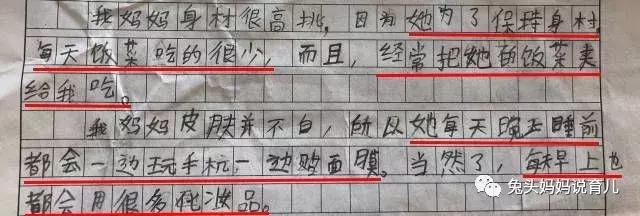 我妈妈身材很高挑，因为她为了保持身材，
每天饭菜吃的很少，而且，经常把她的饭菜夹
给我吃。
我妈妈皮肤并不白，所以她每天晚上睡前
都会一边玩手机一边贴面膜。当然了，每早上也
都会用很多化妆品。
兔头妈妈说育儿